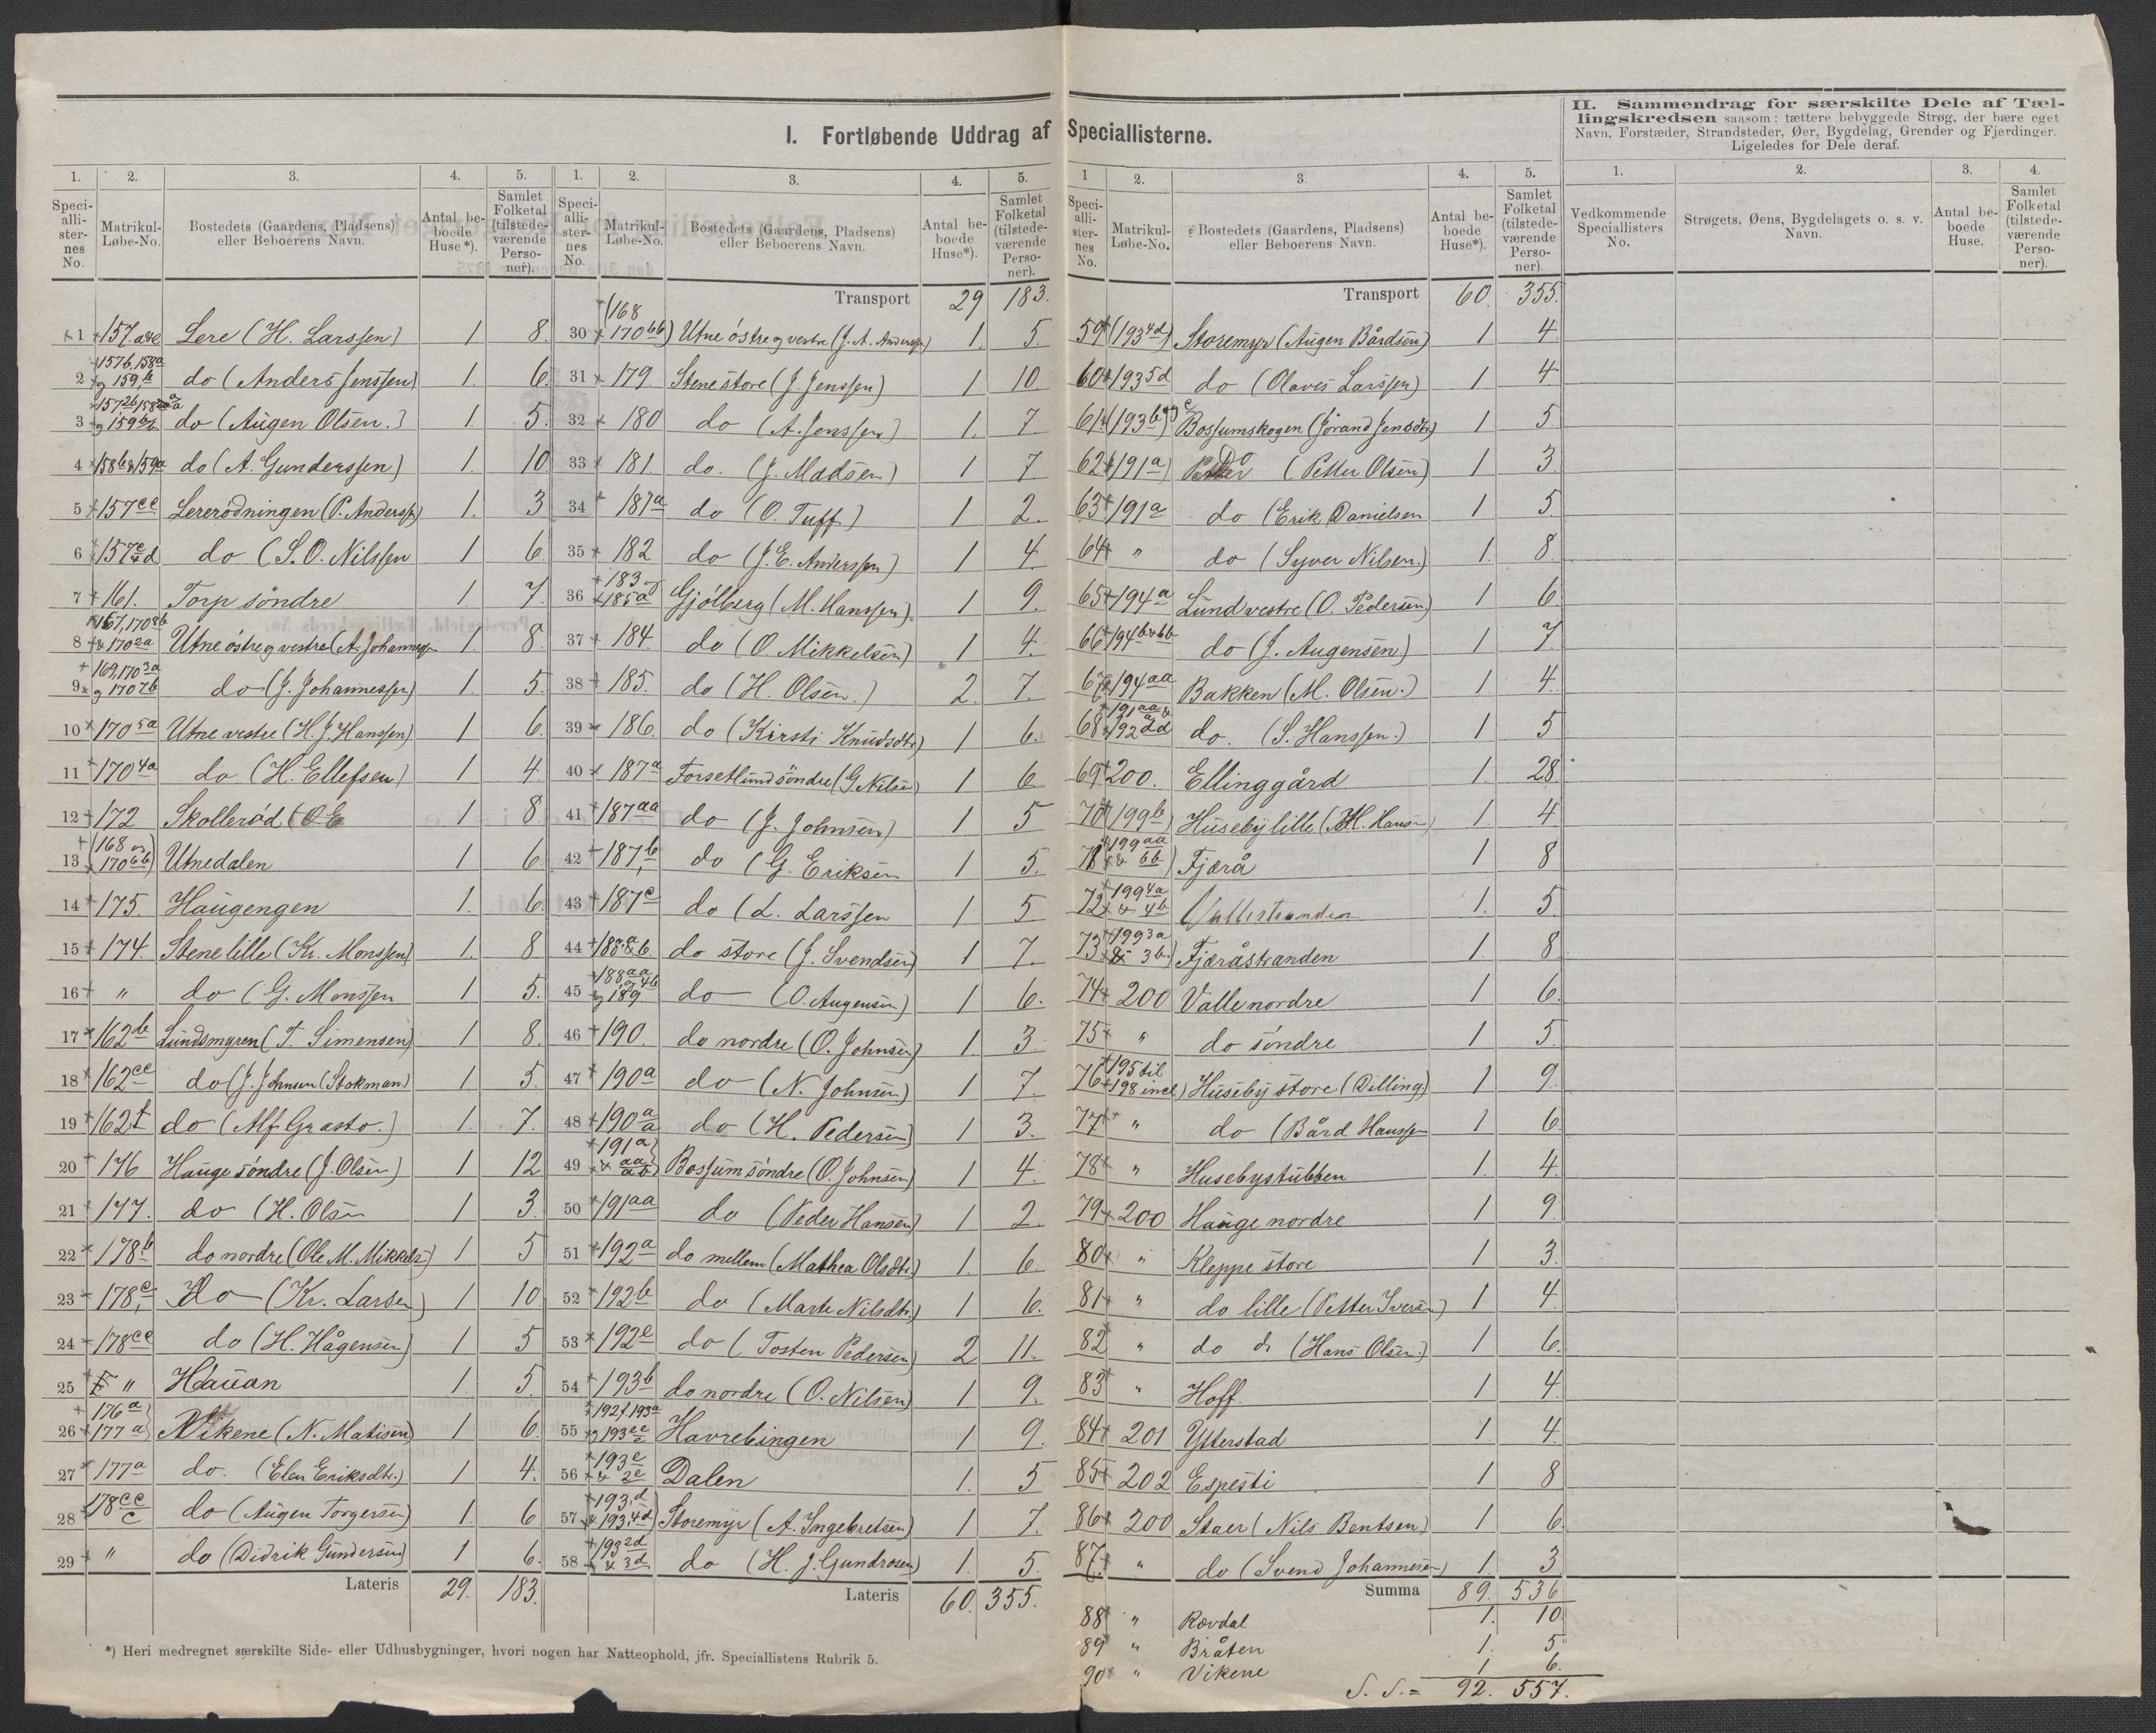 I. Fortløbende Uddrag af Speciallisterne.
II. Sammendrag for særskilte Dele af Tællingskredsen saasom: tættere bebyggede Strøg, der bære eget
Navn, Forstæder, Strandsteder, Øer, Bygdelag, Grender og Fjerdinger.
Ligeledes for Dele deraf.
1. 2. 3. 4. 5.
Speciallisternes No. Matrikul-Løbe-No. Bostedets (Gaardens, Pladsens) eller Beboerens Navn. Antal beboede Huse*). Samlet Folketal (tilstedeværende Personer).
1 157 Lere (H. Larssen) 1 8
2 157b, 158a og 159,b do (Anders Jenssen) 1. 6.
3 do (Augen Olsen.) 1. 5.
4 158b&159a do (A. Gunderssen) 1. 10
5 157cc Lererödningen (P. Anderss) 1. 3
6 do (S. O. Nilssen 1 6
7 161. Torp söndre 1. 7.
8 Utne östre og vestre (A. Johanness 1. 8.
9 169, 170 3a og 170 7b do (J. Johannessen) 1. 5.
10 170 5a Utne vestre (H. J. Hanssen) 1 6.
11 170 4a do (H. Ellefsen) 1 4
12 172 Skolleröd (O E 1 8.
13 (168 og 170 6b) Utnedalen 1 6.
14 175. Haugengen 1. 6.
15 174. Stene lille (Kr. Monssen) 1. 8
16 " do (G. Monssen 1 5.
17 162b Lundsmyren (T Simensen) 1 8.
18 162cc do (J. Johnsen (Stokman) 1 5.
19 162f do (Alf Grasto.) 1. 7.
20 176 Hauge söndre (J. Olsen) 1 12
21 177. do (H. Olsen 1 3.
22 178b do nordre (Ole M. Mikkels) 1 5
23 178c, do (Kr. Larsen) 1 10
24 178cc do (H. Hågensen) 1 5
25 " Hauan 1. 5.
26 176a 177a Vikene (N. Matisen) 1 6.
27 177a do. (Elen Eriksdtr.) 1 4.
28 178cc c do (Augen Torgersen) 1. 6
29 " do (Didrik Gundersen) 1 6.
Lateris 29. 183.
1. 2. 3. 4. 5.
Speciallisternes No. Matrikul-Løbe-No. Bostedets (Gaardens, Pladsens) eller Beboerens Navn. Antal beboede Huse*). Samlet Folketal (tilstedeværende Personer).
Transport 29 183.
30 (168 170 6b) Utne östre og vestre (J. A. Anderssen) 1. 5.
31 179. Stene store (J Jenssen) 1 10
32 180 do (A. Jenssen) 1. 7.
33 181. do. (J. Madsen) 1 7
34 181a do (O. Tuff.) 1 2.
35 182 do (J. E. Anderssen) 1 4.
36 183 og 185a Gjölberg (M. Hanssen). 1 9.
37 184. do (O. Mikkelsen) 1 4.
38 185. do (H. Olsen.) 2. 7.
39 186. do (Kirsti Knudsdtr) 1 6.
40 187a Forsetlund söndre (G. Nilsen) 1 6
41 187aa do (J. Johnsen) 1 5
42 187,b do (G. Eriksen 1 5.
43 187c do (L. Larssen 1 5
44 do store (J. Svendsen) 1 7.
45 188aa og 189 4b do (O. Augensen) 1 6.
46 190. do nordre (O. Johnsen) 1. 3.
47 190a do (N. Johnsen) 1 7.
48 190a a do (H. Pedersen) 1 3.
49 191a Bossum söndre (O. Johnsen) 1 4.
50 191aa do (Peder Hansen) 1 2.
51 192a do mellem (Mathea Olsdtr.) 1. 6.
52 192b do (Marte Nilsdtr.) 1 6.
53 192e do (Tosten Pedersen) 2 11.
54 193b do nordre (O. Nilsen) 1 9.
55 Havrebingen 1 9.
56 193e & 2e Dalen 1. 5
57 193,d & 193,4d Storemyr (A. Ingebretsen) 1 7.
58 193 2d & 3d do (H. J. Gundrosen) 1. 5.
Lateris 60. 355.
1 2. 3. 4. 5.
Speciallisternes No. Matrikul-Løbe-No. Bostedets (Gaardens, Pladsens) eller Beboerens Navn. Antal beboede Huse*). Samlet Folketal (tilstedeværende Personer).
Transport 60. 355.
59 (193 4d) Storemyr (Augen Bårdsen) 1 4.
60 193 5d do (Olaves Larssen) 1 4
61 (193b og c) Bossumskogen (Jörand Jensdtr.) 1 5
62 (191a) Do (Petter Olsen) 1 3.
63 191a do (Erik Danielsen 1 5
64 " do (Syver Nilsen.) 1. 8.
65 194a Lund vestre (O. Pedersen) 1 6.
66 194b&bb do (J. Augensen.) 1 7.
67 194aa Bakken (M. Olsen.) 1 4.
68 191aa & 192dd do. (S. Hanssen.) 1 5
69 200. Ellinggård 1. 28.
70 (199b) Huseby lille (H. Hans) 1. 4
71 (199aa & bb) Fjærå 1 8
72 199 4a & 4b Vallestranden 1. 5.
73 199 3a & 3b) Fjæråstranden 1 8
74 200 Valle nordre 1 6.
75 " do söndre 1 5
76 195 til 198 incl.) Huseby store (Dilling) 1 9.
77 " do (Bård Hanssen 1 6
78 " Husebystubben 1 4.
79 200 Hauge nordre 1 9.
80 " Kleppe store 1 3.
81 " do lille (Petter Iversen) 1 4.
82 " do do (Hans Olsen.) 1 6.
83 " Hoff. 1 4.
84 201 Ytterstad 1 4.
85 202 Espesti 1 8
86 200 Staer (Nils Bentsen) 1 6.
87. " do (Svend Johannesen) 1. 3
Summa 89. 536
88 " Rovdal 1. 10
89 " Bråten 1. 5
90 " Vikene 1 6.
S. S. = 92. 557.
1. 2. 3. 4.
Vedkommende Speciallisters No. Strøgets, Øens, Bygdelagets o. s. v. Navn. Antal beboede Huse. Samlet Folketal (tilstedeværende Personer).
*) Heri medregnet særskilte Side- eller Udhusbygninger, hvori nogen har Natteophold, jfr. Speciallistens Rubrik 5.